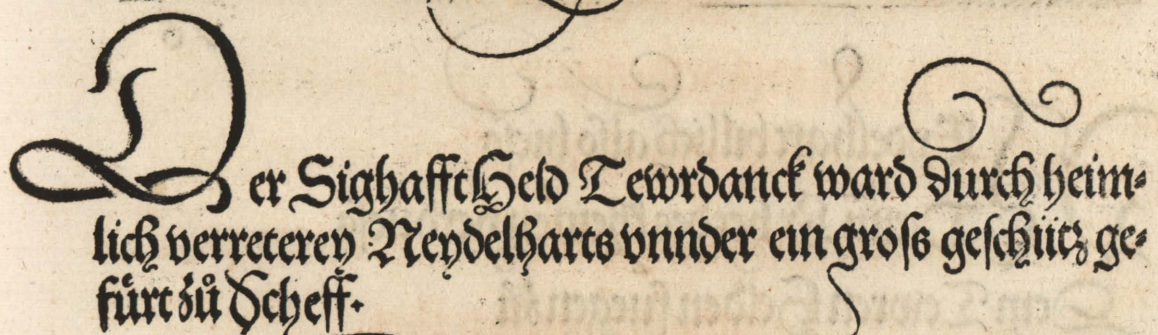 Der Sighafft Held Tewrdanck ward durch heim⸗
lich verreterey Neydelharts vnnder ein groſs geſchütz ge⸗
fürt zů Scheff.